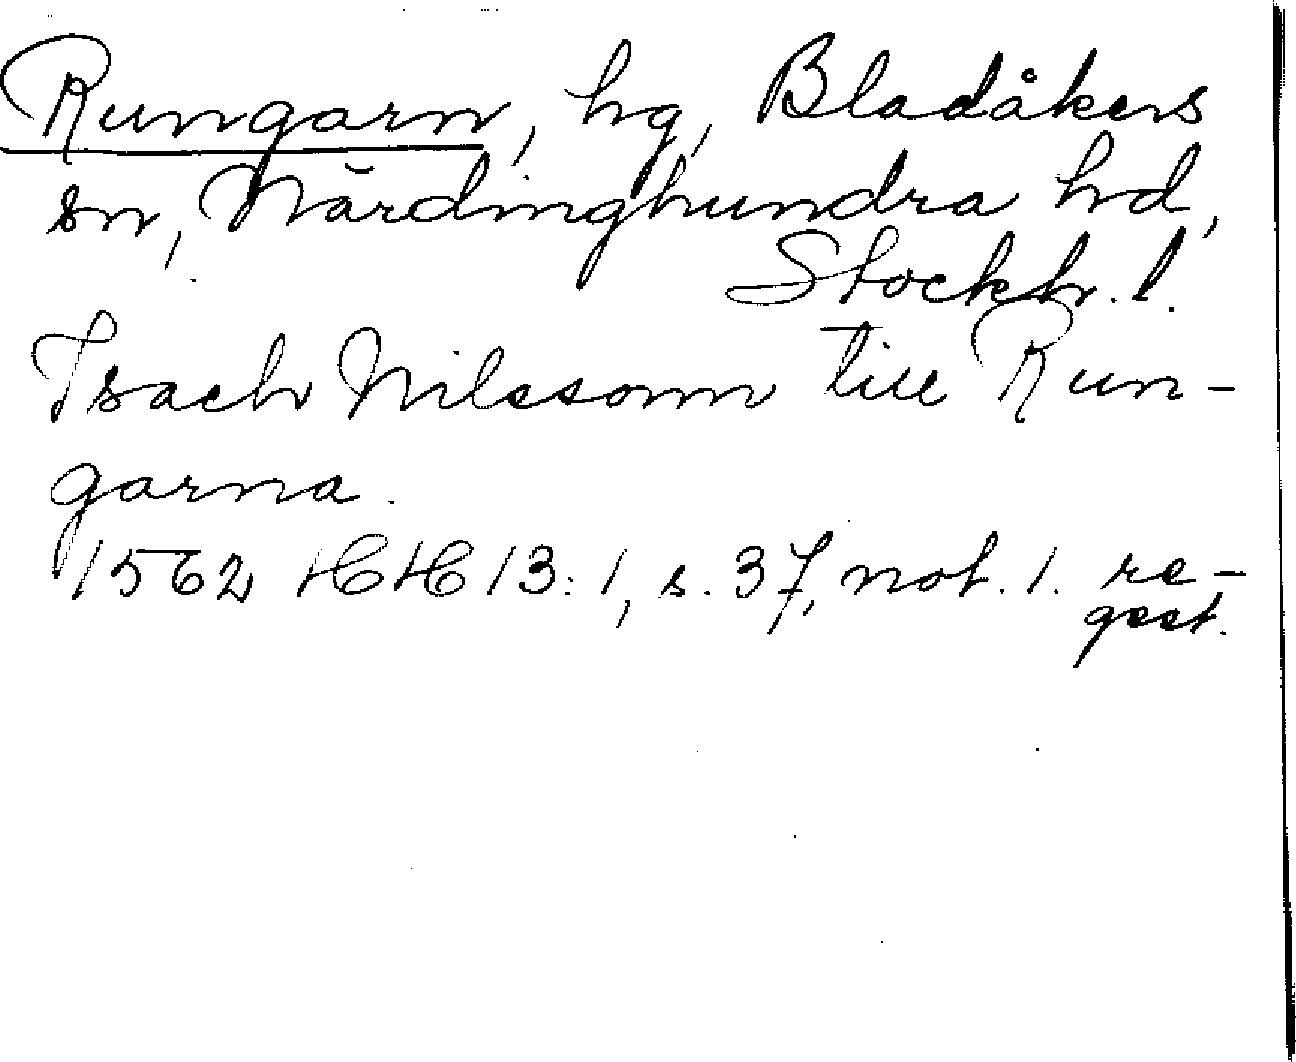 Rungarn, hg, Bladåkers
sn, Närdinghundra hd,
Stockh. l.
Isach Nilssonn till Run-
garna.
1562 HH 13:1, s. 37, not. 1. re-
gest.